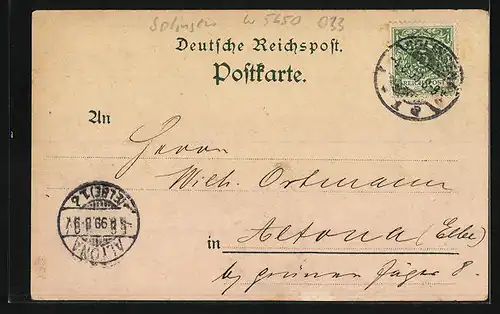 Solingen W 5650 033
Deutsche Reichspost.
Postkarte.
An
Herrn
Wilh. Ortmann
in Altona (Elbe)
by grüner Jäger 8.
ALTONA
(ELBE)